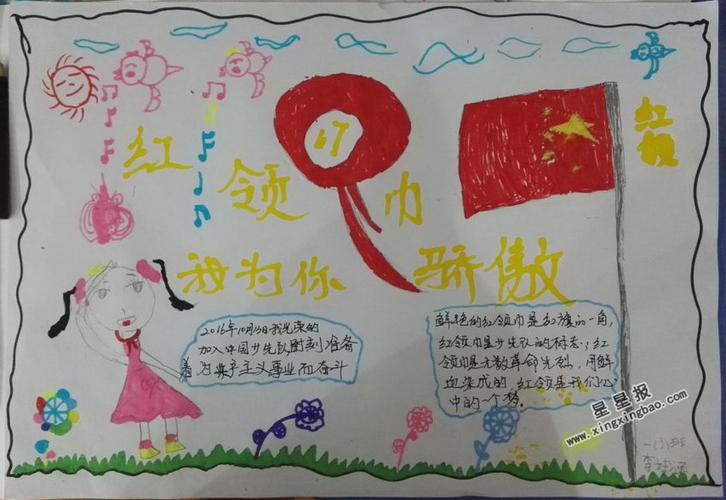 红领巾
我为你骄傲
红领
17
2016年10月13日我光荣的
加入中国少先队时刻准备着
为共产主义事业而奋斗
鲜艳的红领巾是红旗的一角,
红领巾是少先队的标志;红
领巾是无数革命先烈,用鲜
血染成的,红领是我们心
中的一个梦。
星星报
www.xingxingbao.com
一(3)班